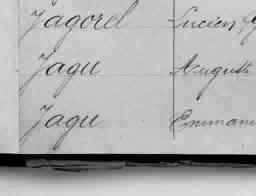 Jagorel Lucien
Jagu Auguste
Jagu Emmanu